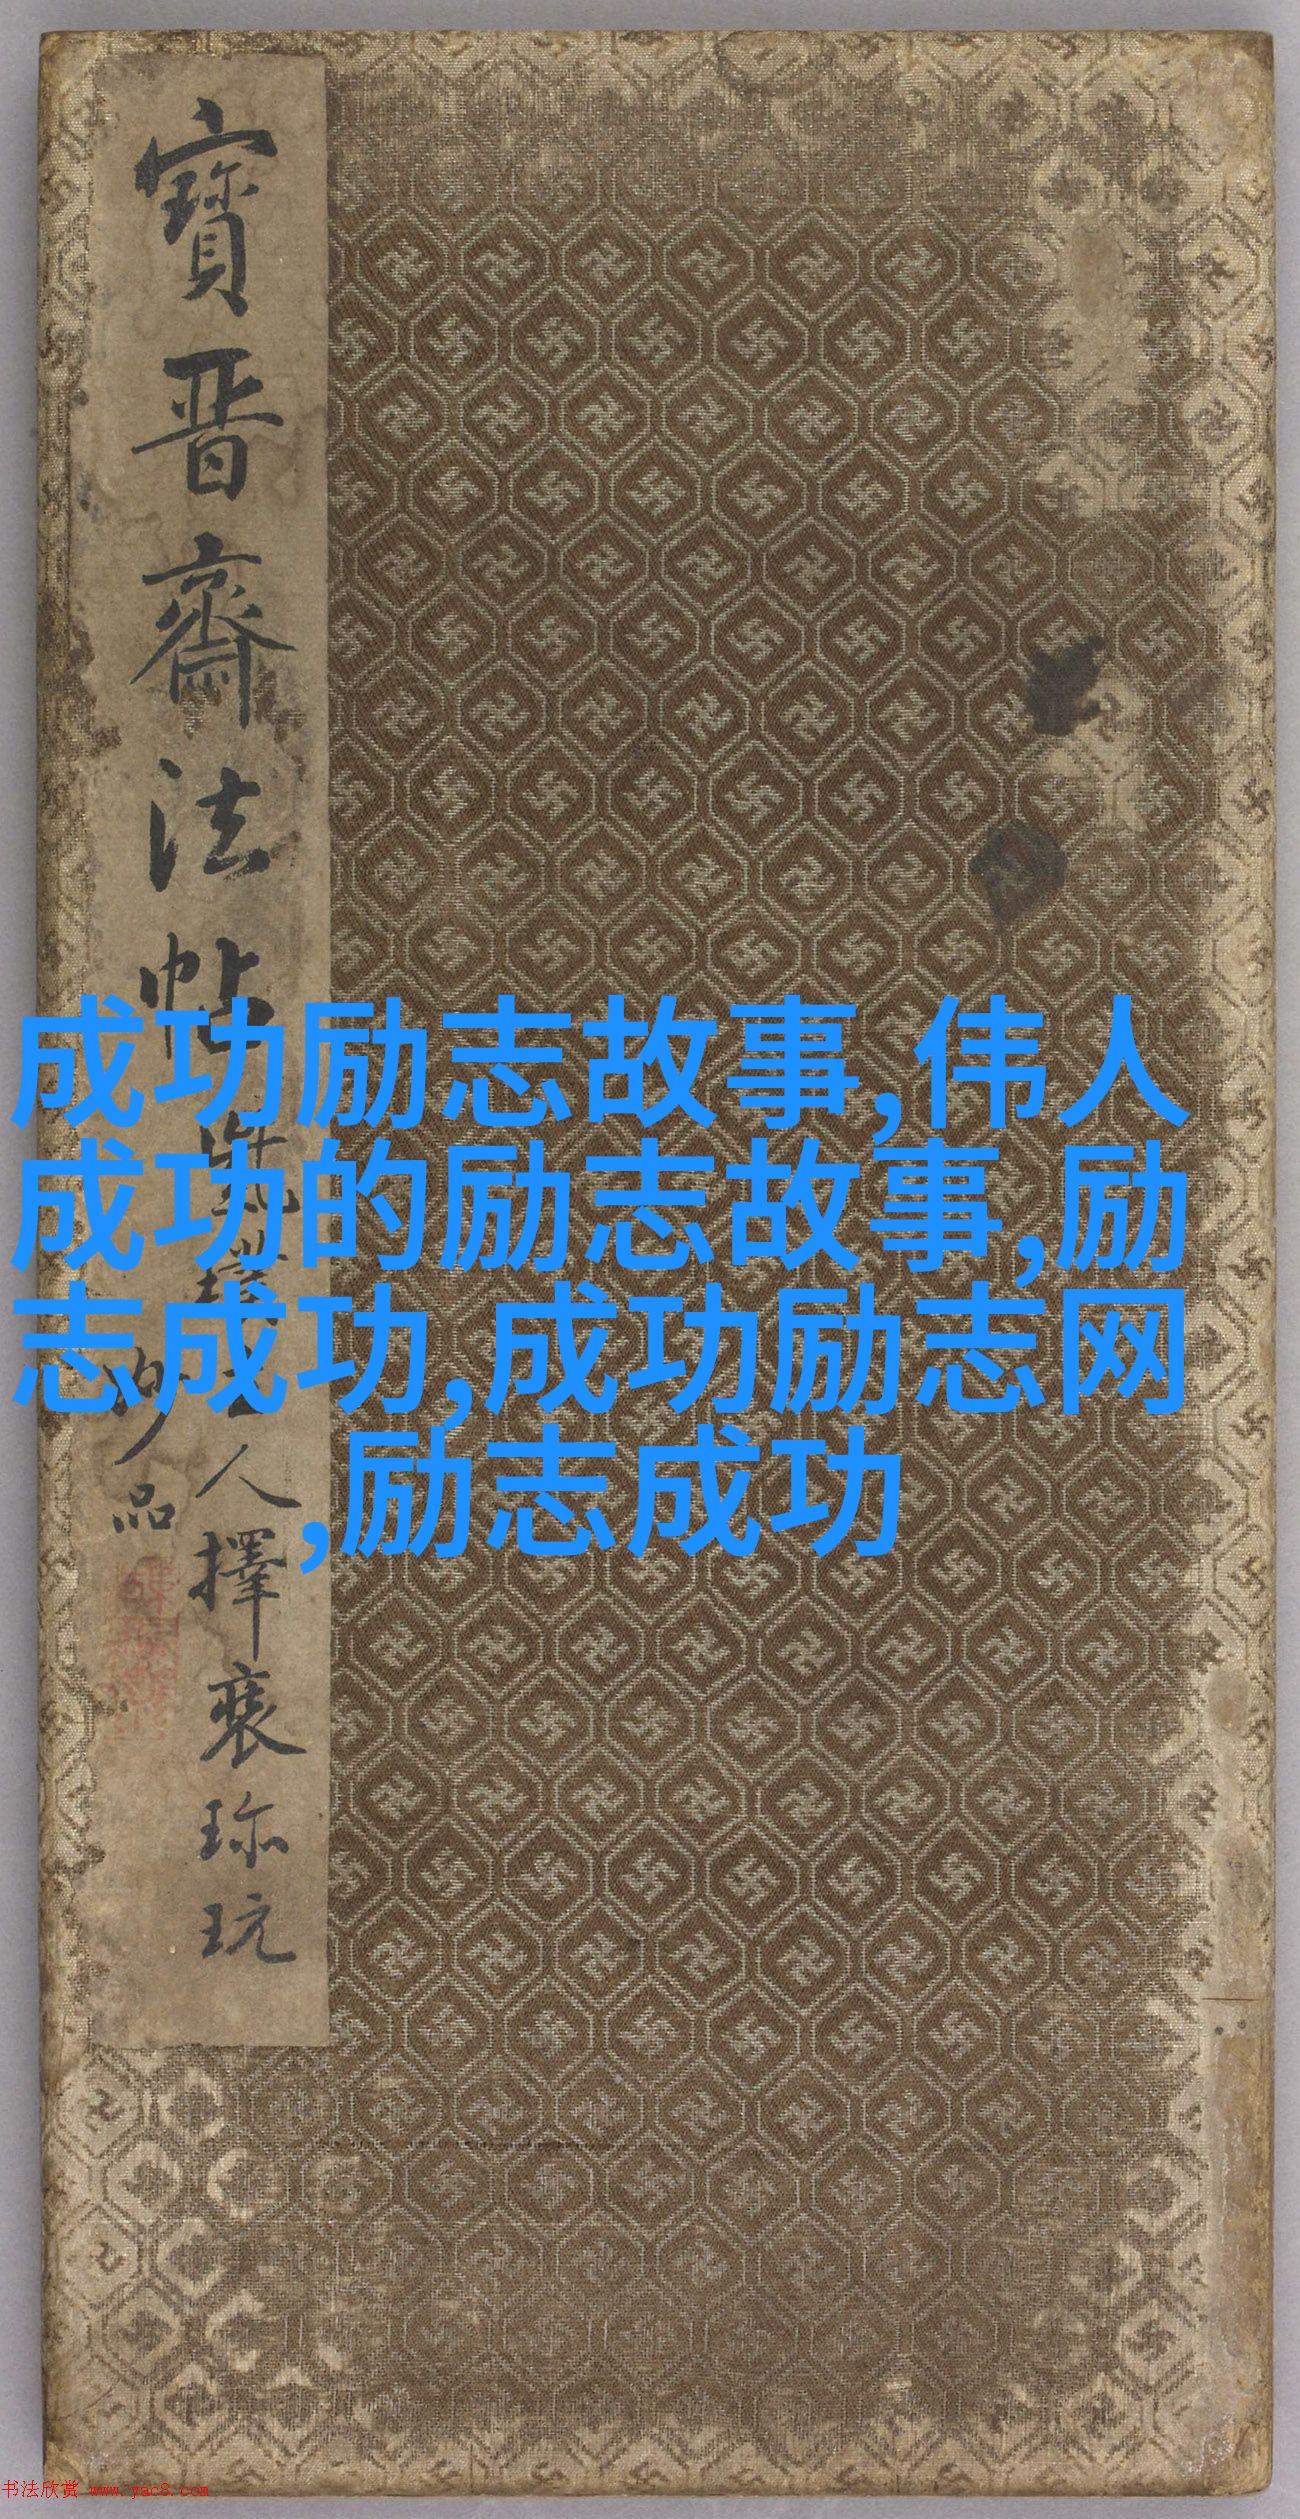 寶晉齋法帖
人擇裵珎玩
品
成功励志故事,伟人
成功的励志故事,励
志成功,成功励志网
,励志成功
书法欣赏 www.yac8.com